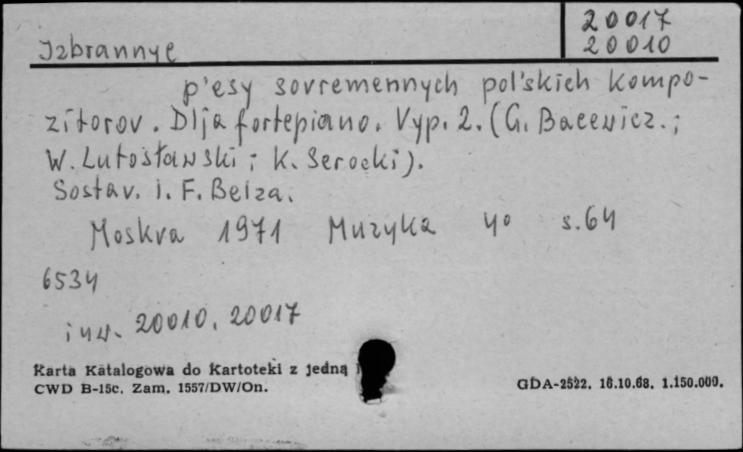 20017
20010
Izbrannye
p'esy sovremennych pol'skich kompo-
zitorov. Dlja fortepiano. Vyp. 2. (G. Bacewicz.;
W. Lutosławski; K. Serocki).
Sostav. i. F. Bełza.
Moskva 1971 Muzyka 4° s.64
6534
inw. 20010, 20017
Karta Katalogowa do Kartoteki z jedną
CWD B-15c. Zam. 1557/DW/On.
GDA-2522. 16.10.68. 1.150.000.